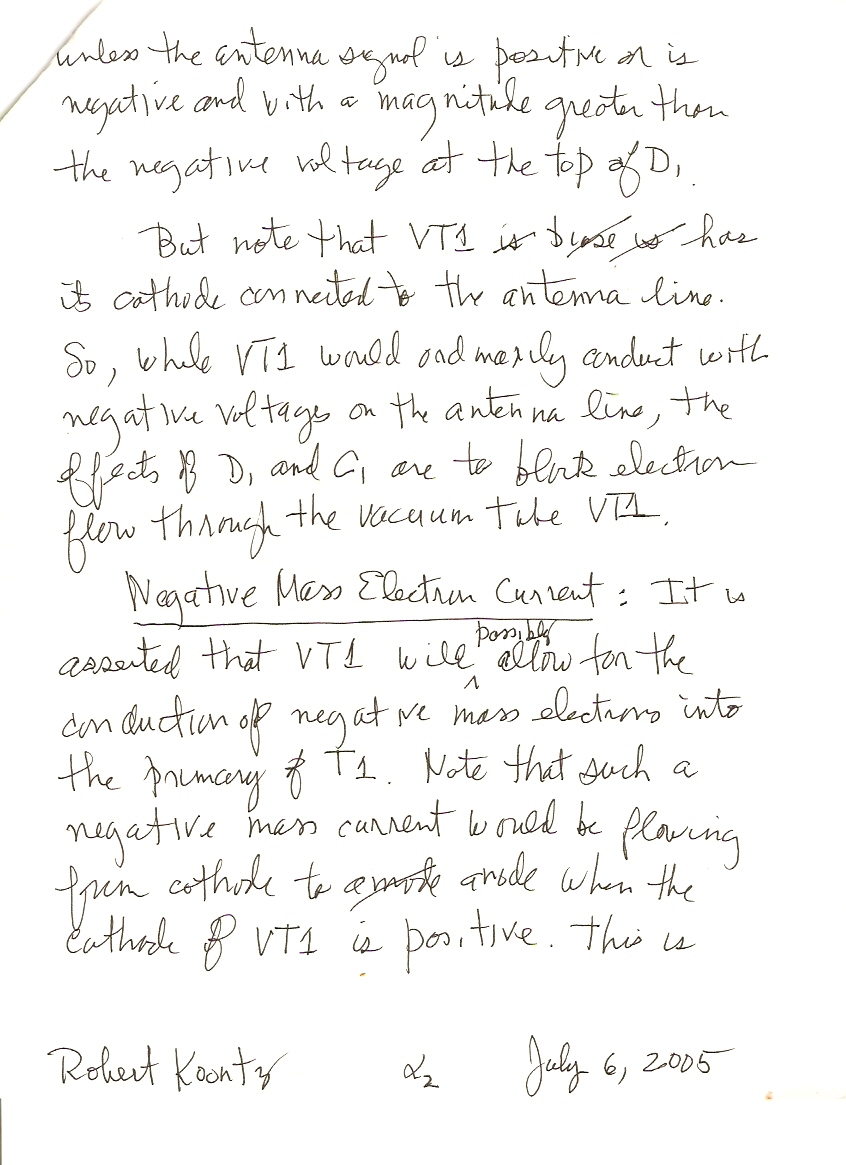 unless the antenna signal is positive or is
negative and with a magnitude greater than
the negative voltage at the top of D₁.
But note that VT1 ~~is~~ ~~biase~~ ~~is~~ has
its cathode connected to the antenna line.
So, while VT1 would ordinarily conduct with
negative voltages on the antenna line, the
effects of D₁ and C₁ are to block electron
flow through the vacuum tube VT1.
Negative Mass Electron Current : It is
possibly
asserted that VT1 will ^ allow for the
conduction of negative mass electrons into
the primary of T1. Note that such a
negative mass current would be flowing
from cathode to ~~amode~~ anode when the
cathode of VT1 is positive. This is
Robert Koontz α₂ July 6, 2005